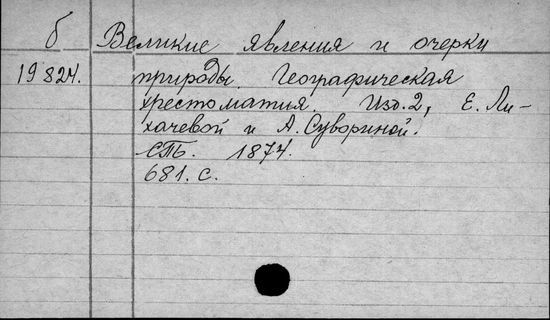 б Великие явления и очерки
19824. природы. Географическая
хрестоматия. Изд. 2, Е. Ли-
хачевой и А. Сувориной.
СПБ. 1874.
681. с.